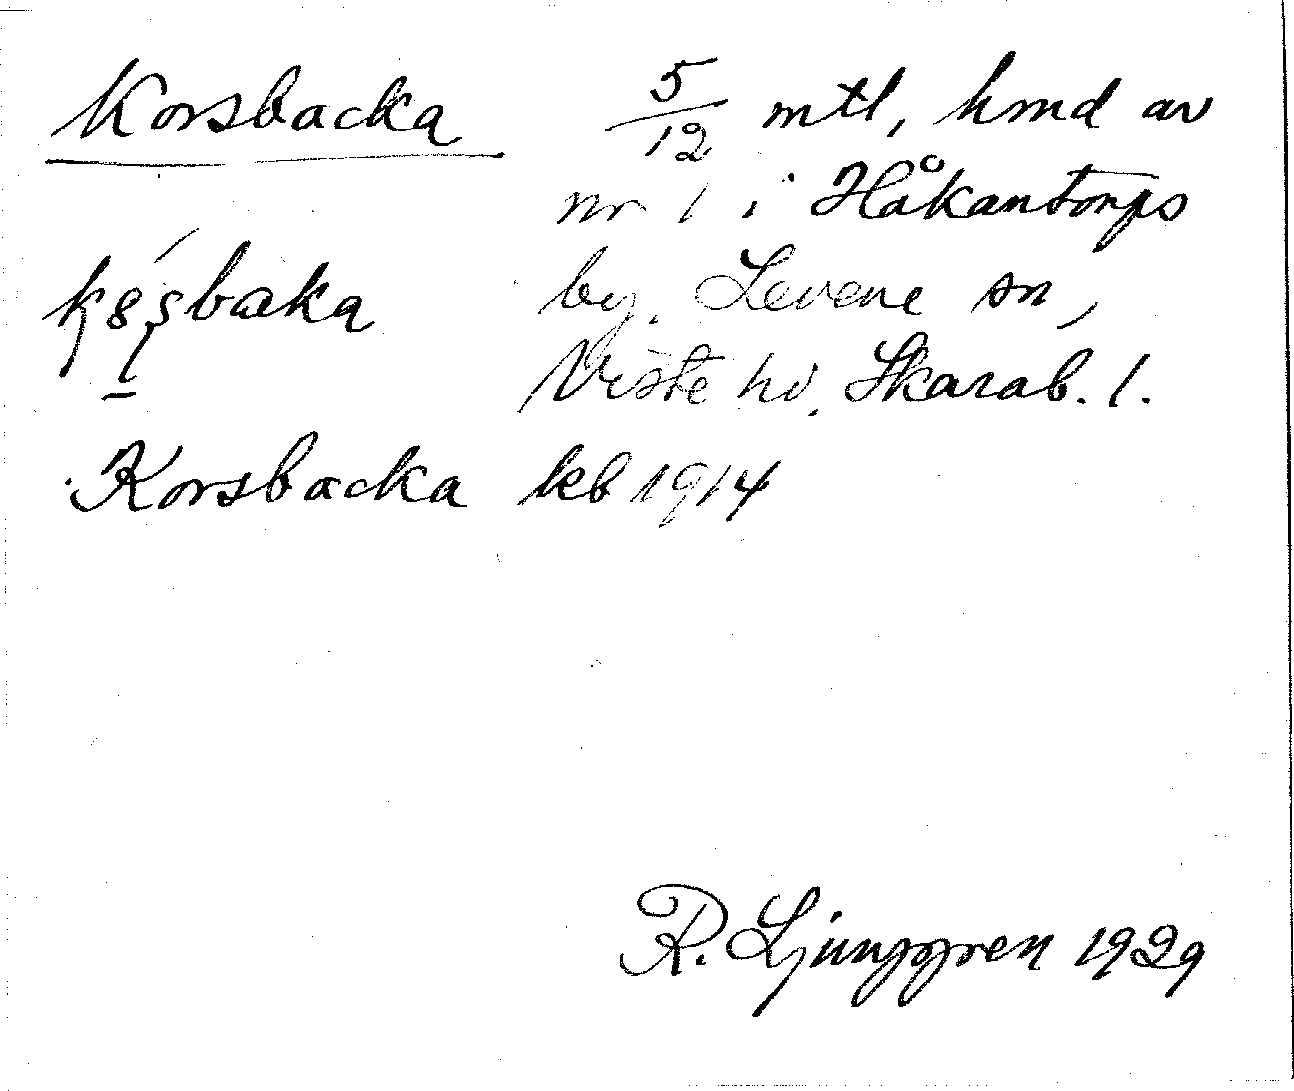 Korsbacka 5/12 mtl, hmd av
nr 1 i Håkantorps
by. Levene sn,
Viste hd. Skarab. l.
Korsbacka kb 1914
R. Ljunggren 1929